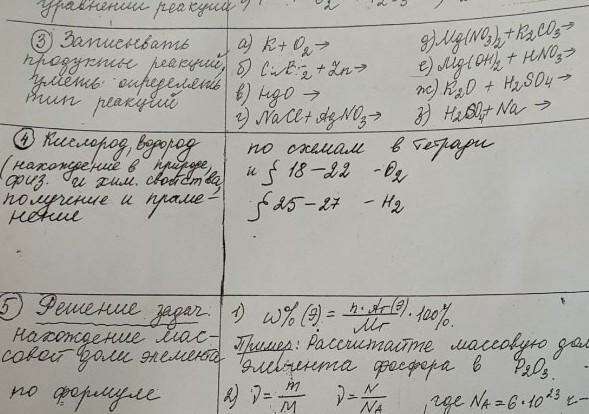 уравнении реакции
③ Записывать
продукты реакций,
уметь определять
тип реакций
а) K + O₂ →
б) CuCl₂ + Zn →
в) HgO →
г) NaCl + AgNO₃ →
д) Mg(NO₃)₂ + K₂CO₃ →
е) Mg(OH)₂ + HNO₃ →
ж) K₂O + H₂SO₄ →
з) H₂SO₄ + Na →
④ Кислород, водород
(нахождение в природе,
физ. и хим. свойства,
получение и приме-
нение
по схемам в тетради
и § 18 – 22 – O₂
§ 25 – 27 – H₂
⑤ Решение задач.
нахождение мас-
совой доли элемента
по формуле
1) ω%(Э) = n·Ar(Э)/Mr · 100%.
Пример: Рассчитайте массовую дол
элемента фосфора в P₂O₃.
2) ν = m/M ν = N/NA, где NA = 6·10²³